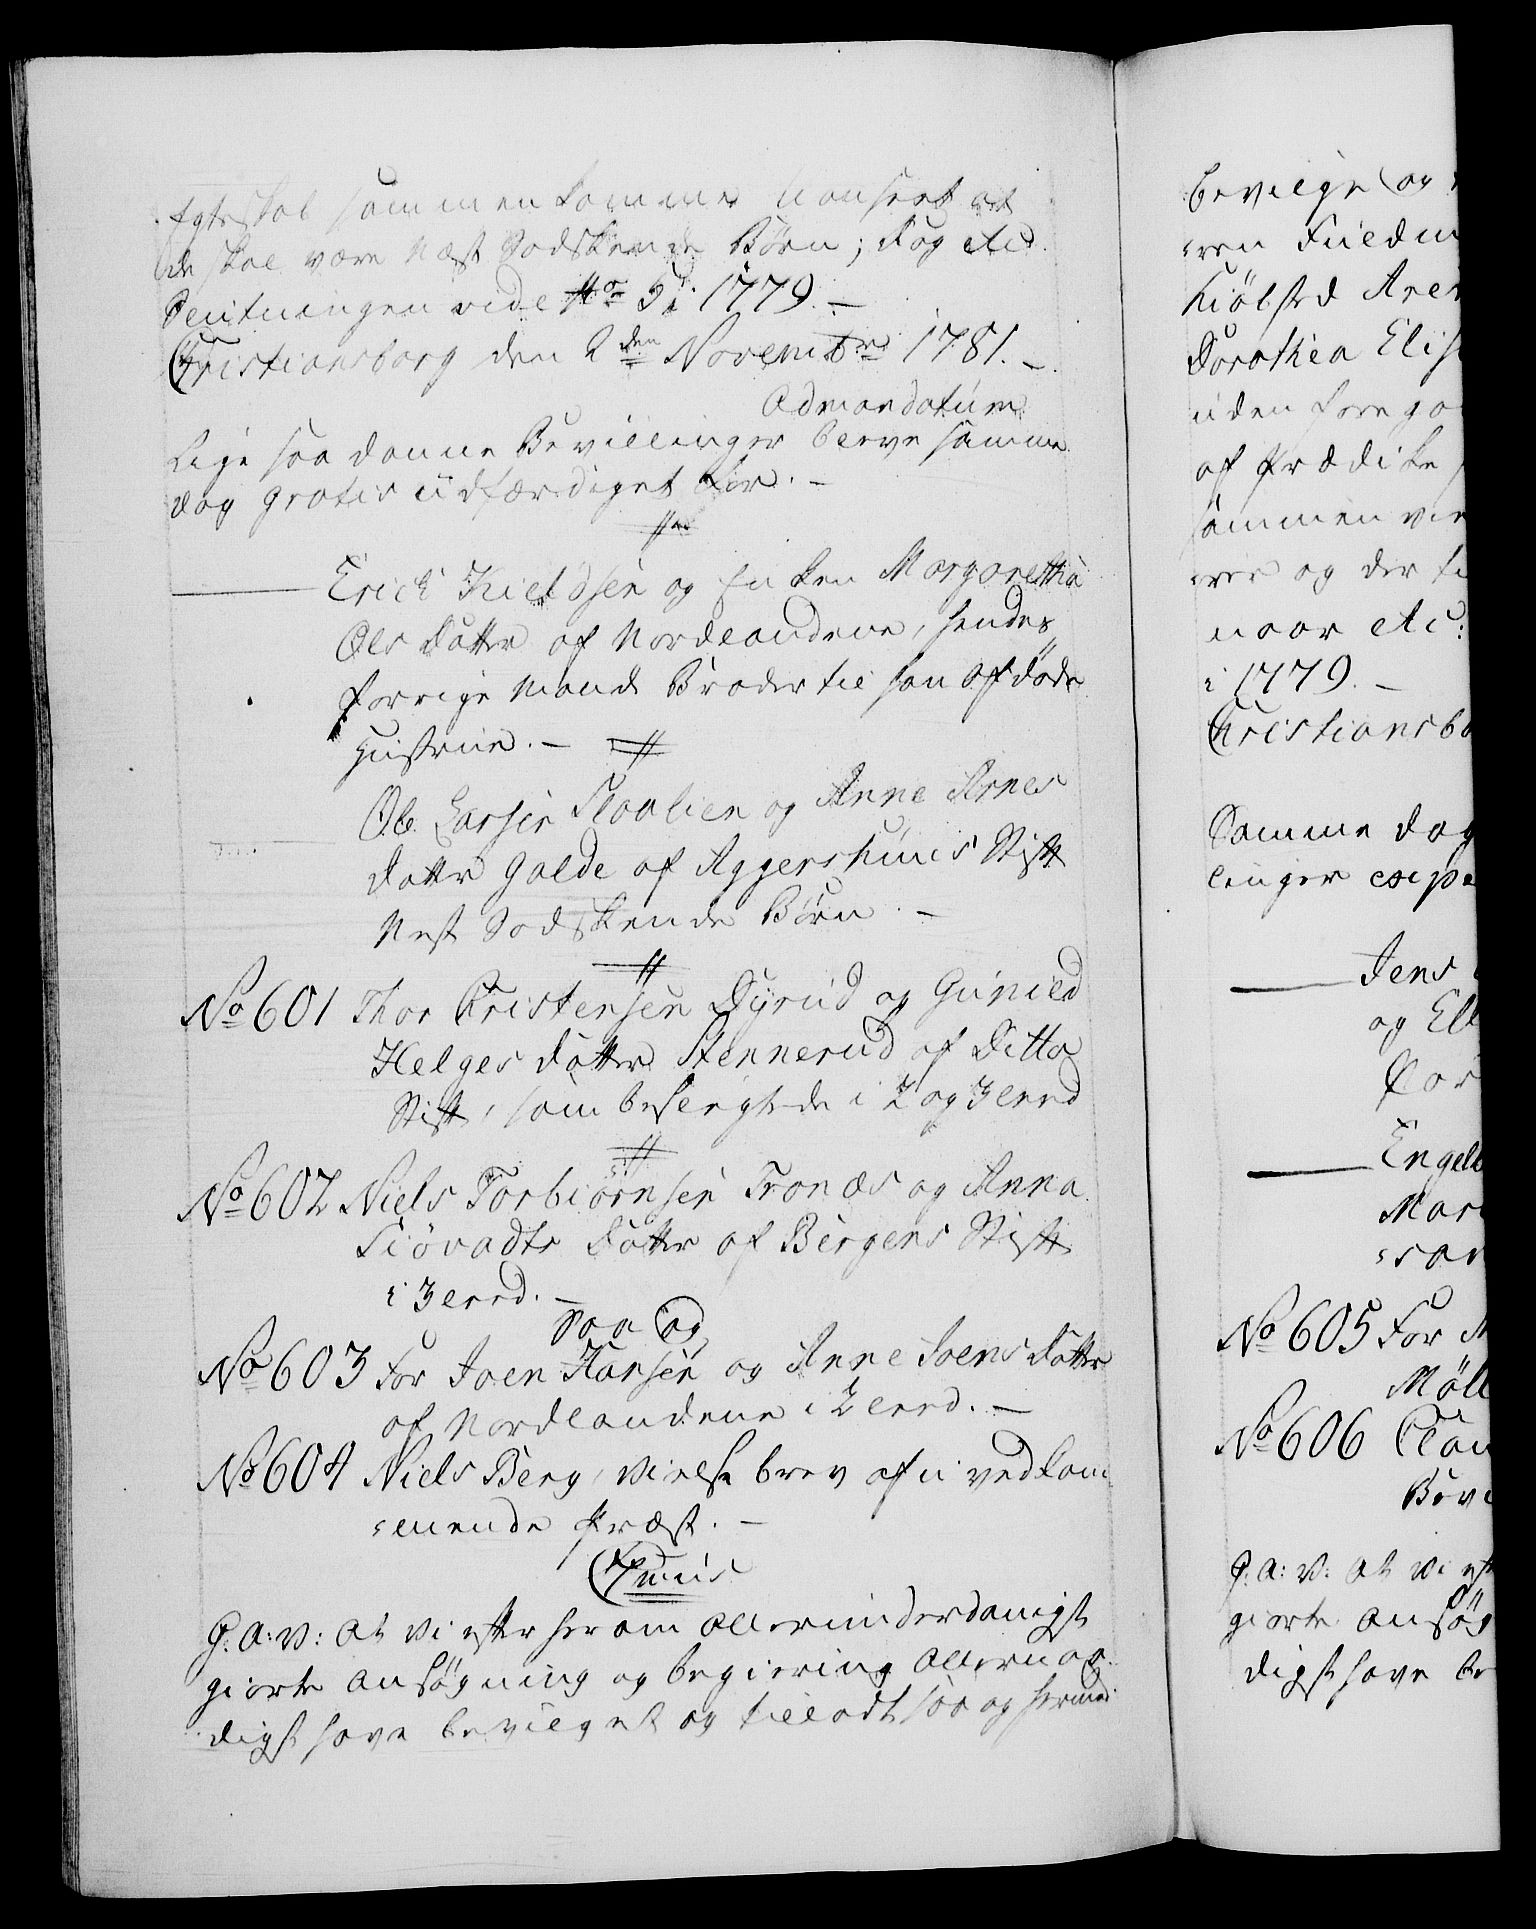 Egteskab sammenkomme uanseet at
de skal være Næst Sødskende Børn; Dog etc:
Slutningen vide No 5 i 1779. –
Christiansborg den 2den Novembr 1781. –
Ad mandatum
Lige saadanne Bevillinger bleve samme
dag gratis udfærdiget for. –
Erich Kieldsen og Enken Margaretha
Ols datter af Nordlandene, hendes
forrige Mand Broder til han Afdøde
Hustrue. –
Ole Larsen Slaalien og Anne Arnes
datter Galde af Aggershuus Stift
Nest Sødskende Børn. –
No 601 Thor Christensen Dyrud og Gunild
Helges datter Stennerud af Ditto
Stift, som besvigrede i 2 og 3 Leed
No 602 Niels Torbiørnsen Tronæs og Anna
Siøvadts datter af Bergens Stift
i 3 Leed. –
Saa og
No 603 For Joen Hansen og Anne Joens datter
af Nordlandene i 2 Leed. –
No 604 Niels Berg, Vielse brev af uvedkom¬
¬mende Præst. –
G: A: V: At Vi efter herom allerunderdanigst
giorte Ansøgning og begiering Allernaa¬
digst have bevilget og tilladt saa og hermed
bevilge og
Friedr
Kiølsted
Dorothea Elis
uden foregaa
af Prædike
sammen vie
og der
naar etc:
i 1779. –
Christiansb
Samme dag
linger expe
Jens
og El
For
Engelb
Mar
No 605 For M
Møll
No 606 Clau
Bevi
G: A: V: At Vi eft
giorte Ansøg
digst have be